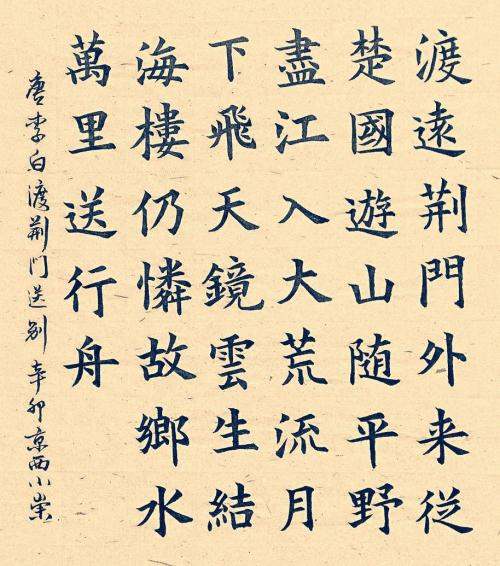 渡遠荆門外来従
楚國遊山随平野
盡江入大荒流月
下飛天鏡雲生結
海樓仍憐故鄉水
萬里送行舟
唐李白渡荆门送别 辛卯京西小